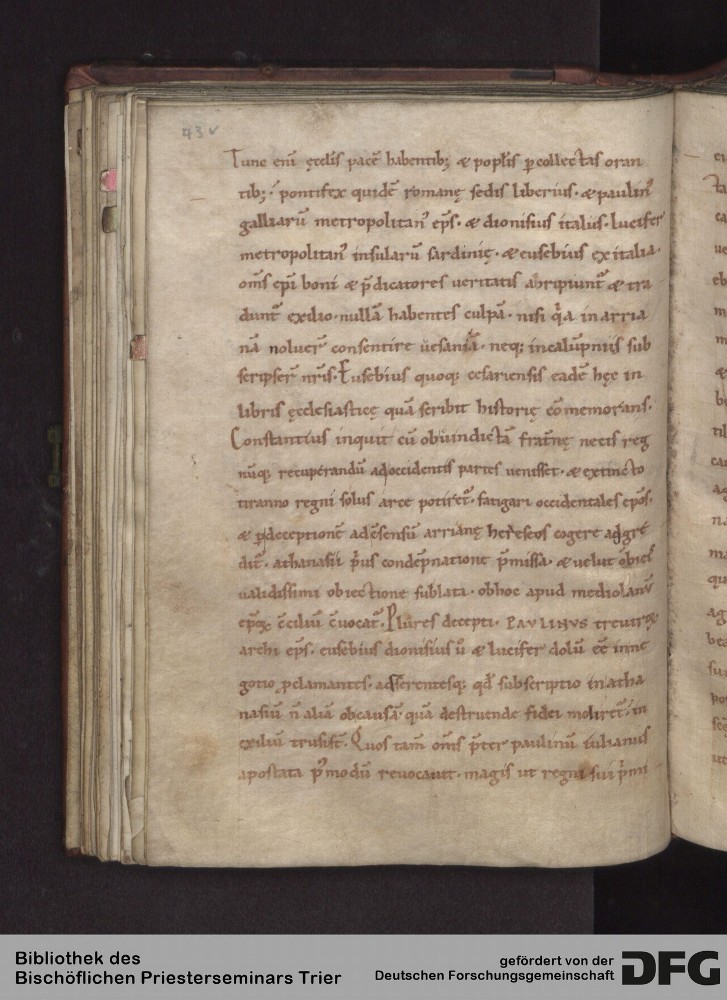 43 v
Tunc eni̅ ęcclis̅ pace̅ habentib; & poplis̅ p̱ collectas oran
tib; pontifex quide̅ romanę sedis liberius · & paulin᾽
galliaru̅ metropolitan᾽ ep̅s · & dionisius italus · lucifer
metropolitan᾽ insularu̅ sardinię · & eusebius ex italia ·
om̅s ep̅i boni & p̅dicatores veritatis abripiunt᾽ & tra
dunt᾽ exilio · nulla̅ habentes culpa̅ · nisi q̇a in arria
na̅ noluer̅ consentire vesania̅ · neq; in calu̅pniis sub
scripser̅ nr̅is · Eusebius quoq; cesariensis eade̅ hęc in
libris ęcclesiasticę qua̅ scribit historię co̅memorans ·
Constantius inquit cu̅ ob vindicta̅ frat̅nę necis reg
nu̅q; recuperandu̅ ad occidentis partes venisset · & extincto
tiranno regni solus arce potiret᾽ · fatigari occidentales ep̅os ·
& p̱ deceptione̅ ad c̅sensu̅ arrianę hereseos cogere adgre
dit᾽ · athanasii p̅us conde̅pnatione p̅missa · & velut obiec᾽
validissimi obiectione sublata · ob hoc apud mediolanu̅
ep̅oꝝ c̅ciliu̅ c̅vocat᾽ · Plures decepti · PAVLINVS treviroꝝ
archi ep̅s · eusebius dionisius u̅ & lucifer dolu̅ ee̅ in ne
gotio p̱clamantes · adserentesq; qd̅ subscriptio in atha
nasiu̅ n̅ alia̅ ob causa̅ · qua̅ destruende fidei moliret᾽ · in
exiliu̅ trusi st̅ · Quos tam̅ om̅s p̅ter paulinu̅ iulianus
apostata p᾽modu̅ revocavit · magis ut regni sui p̅mi
Bibliothek des
Bischöflichen Priesterseminars Trier
gefördert von der
Deutschen Forschungsgemeinschaft
DFG